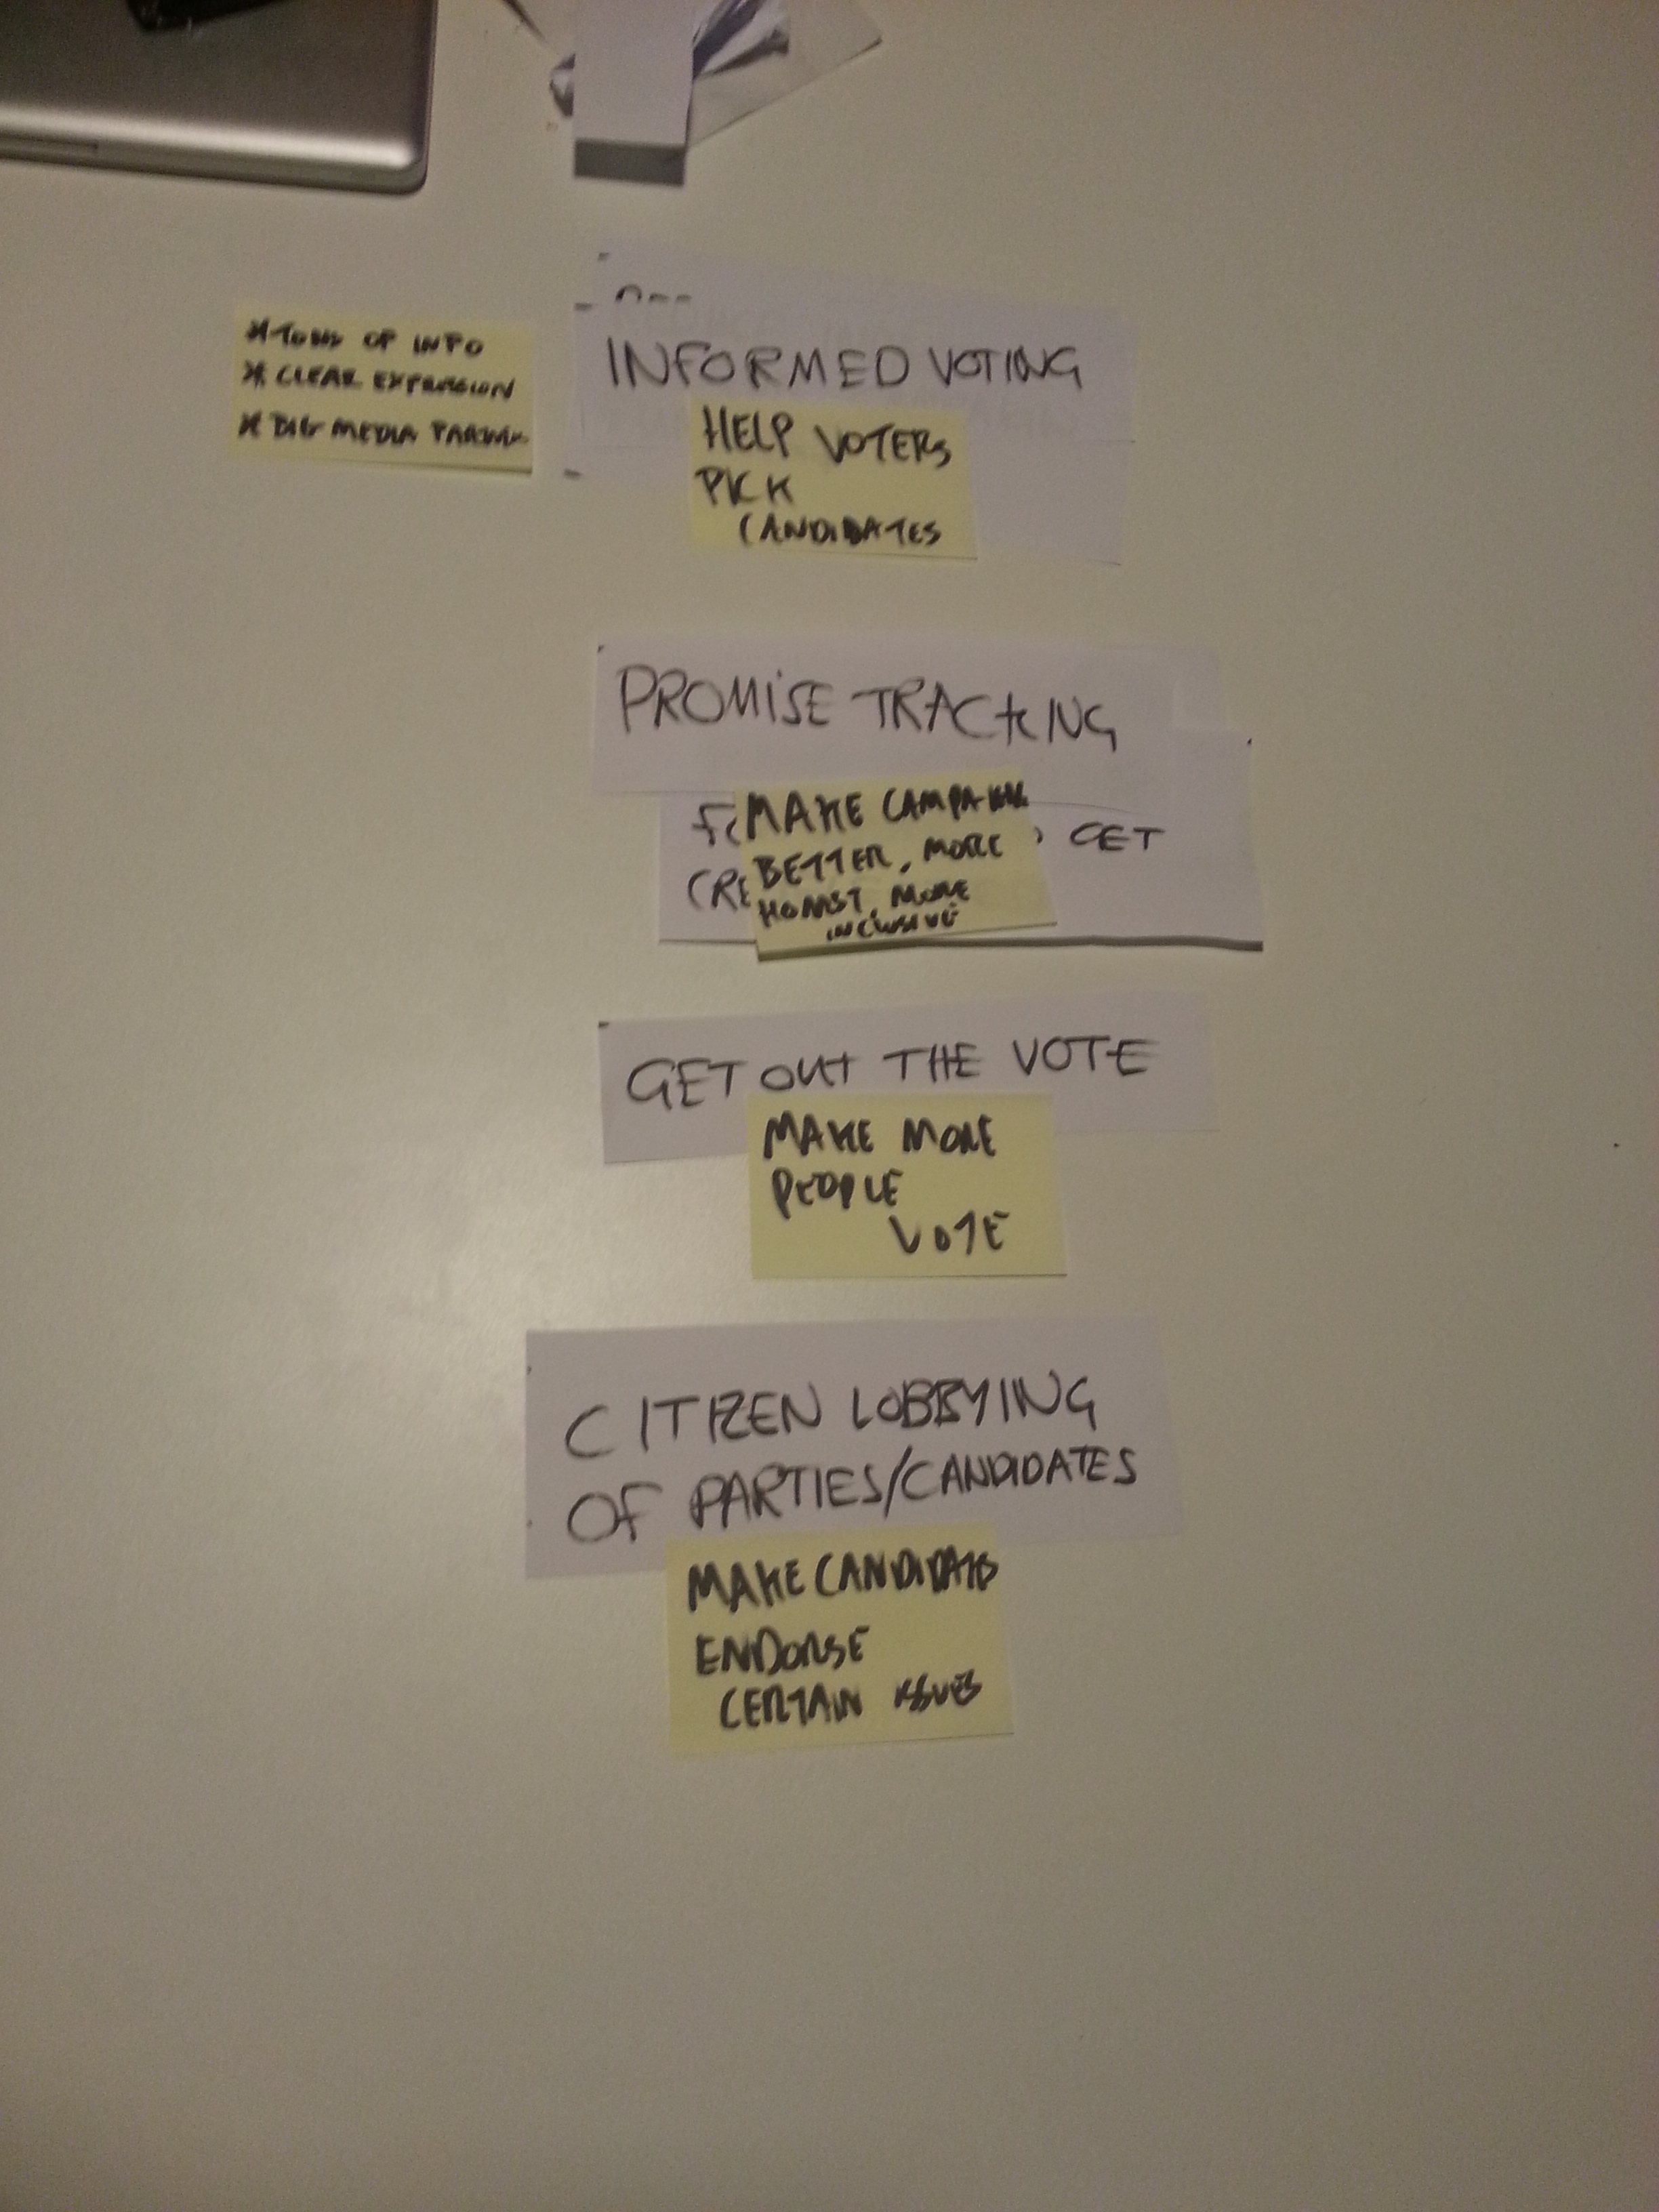 * TONS OF INFO
* CLEAR EXPRESSION
* BIG MEDIA
INFORMED VOTING
HELP VOTERS
PICK
CANDIDATES
PROMISE TRACKING
MAKE CAMPAIGNS
BETTER, MORE
HONEST, MORE
INCLUSIVE
GET
GET OUT THE VOTE
MAKE MORE
PEOPLE
VOTE
CITIZEN LOBBYING
OF PARTIES/CANDIDATES
MAKE CANDIDATES
ENDORSE
CERTAIN ISSUES